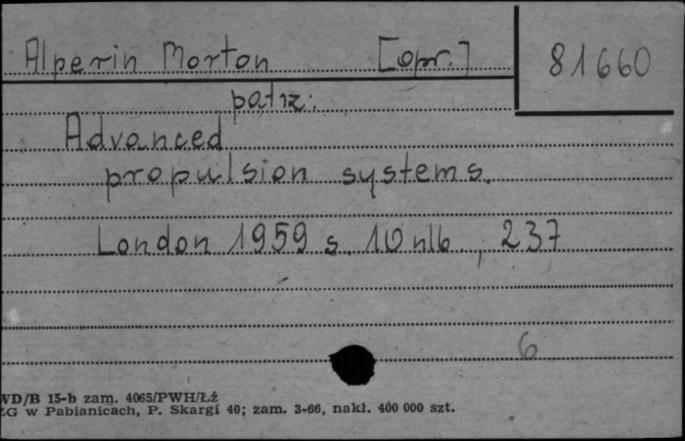 Alperin Morton [opr.] 81660
patrz:
Advanced
propulsion systems.
London 1959 s. 10 nlb., 237
6
WD/B 15-b zam. 4065/PWH/Łź
ZG w Pabianicach, P. Skargi 40; zam. 3-66, nakł. 400 000 szt.